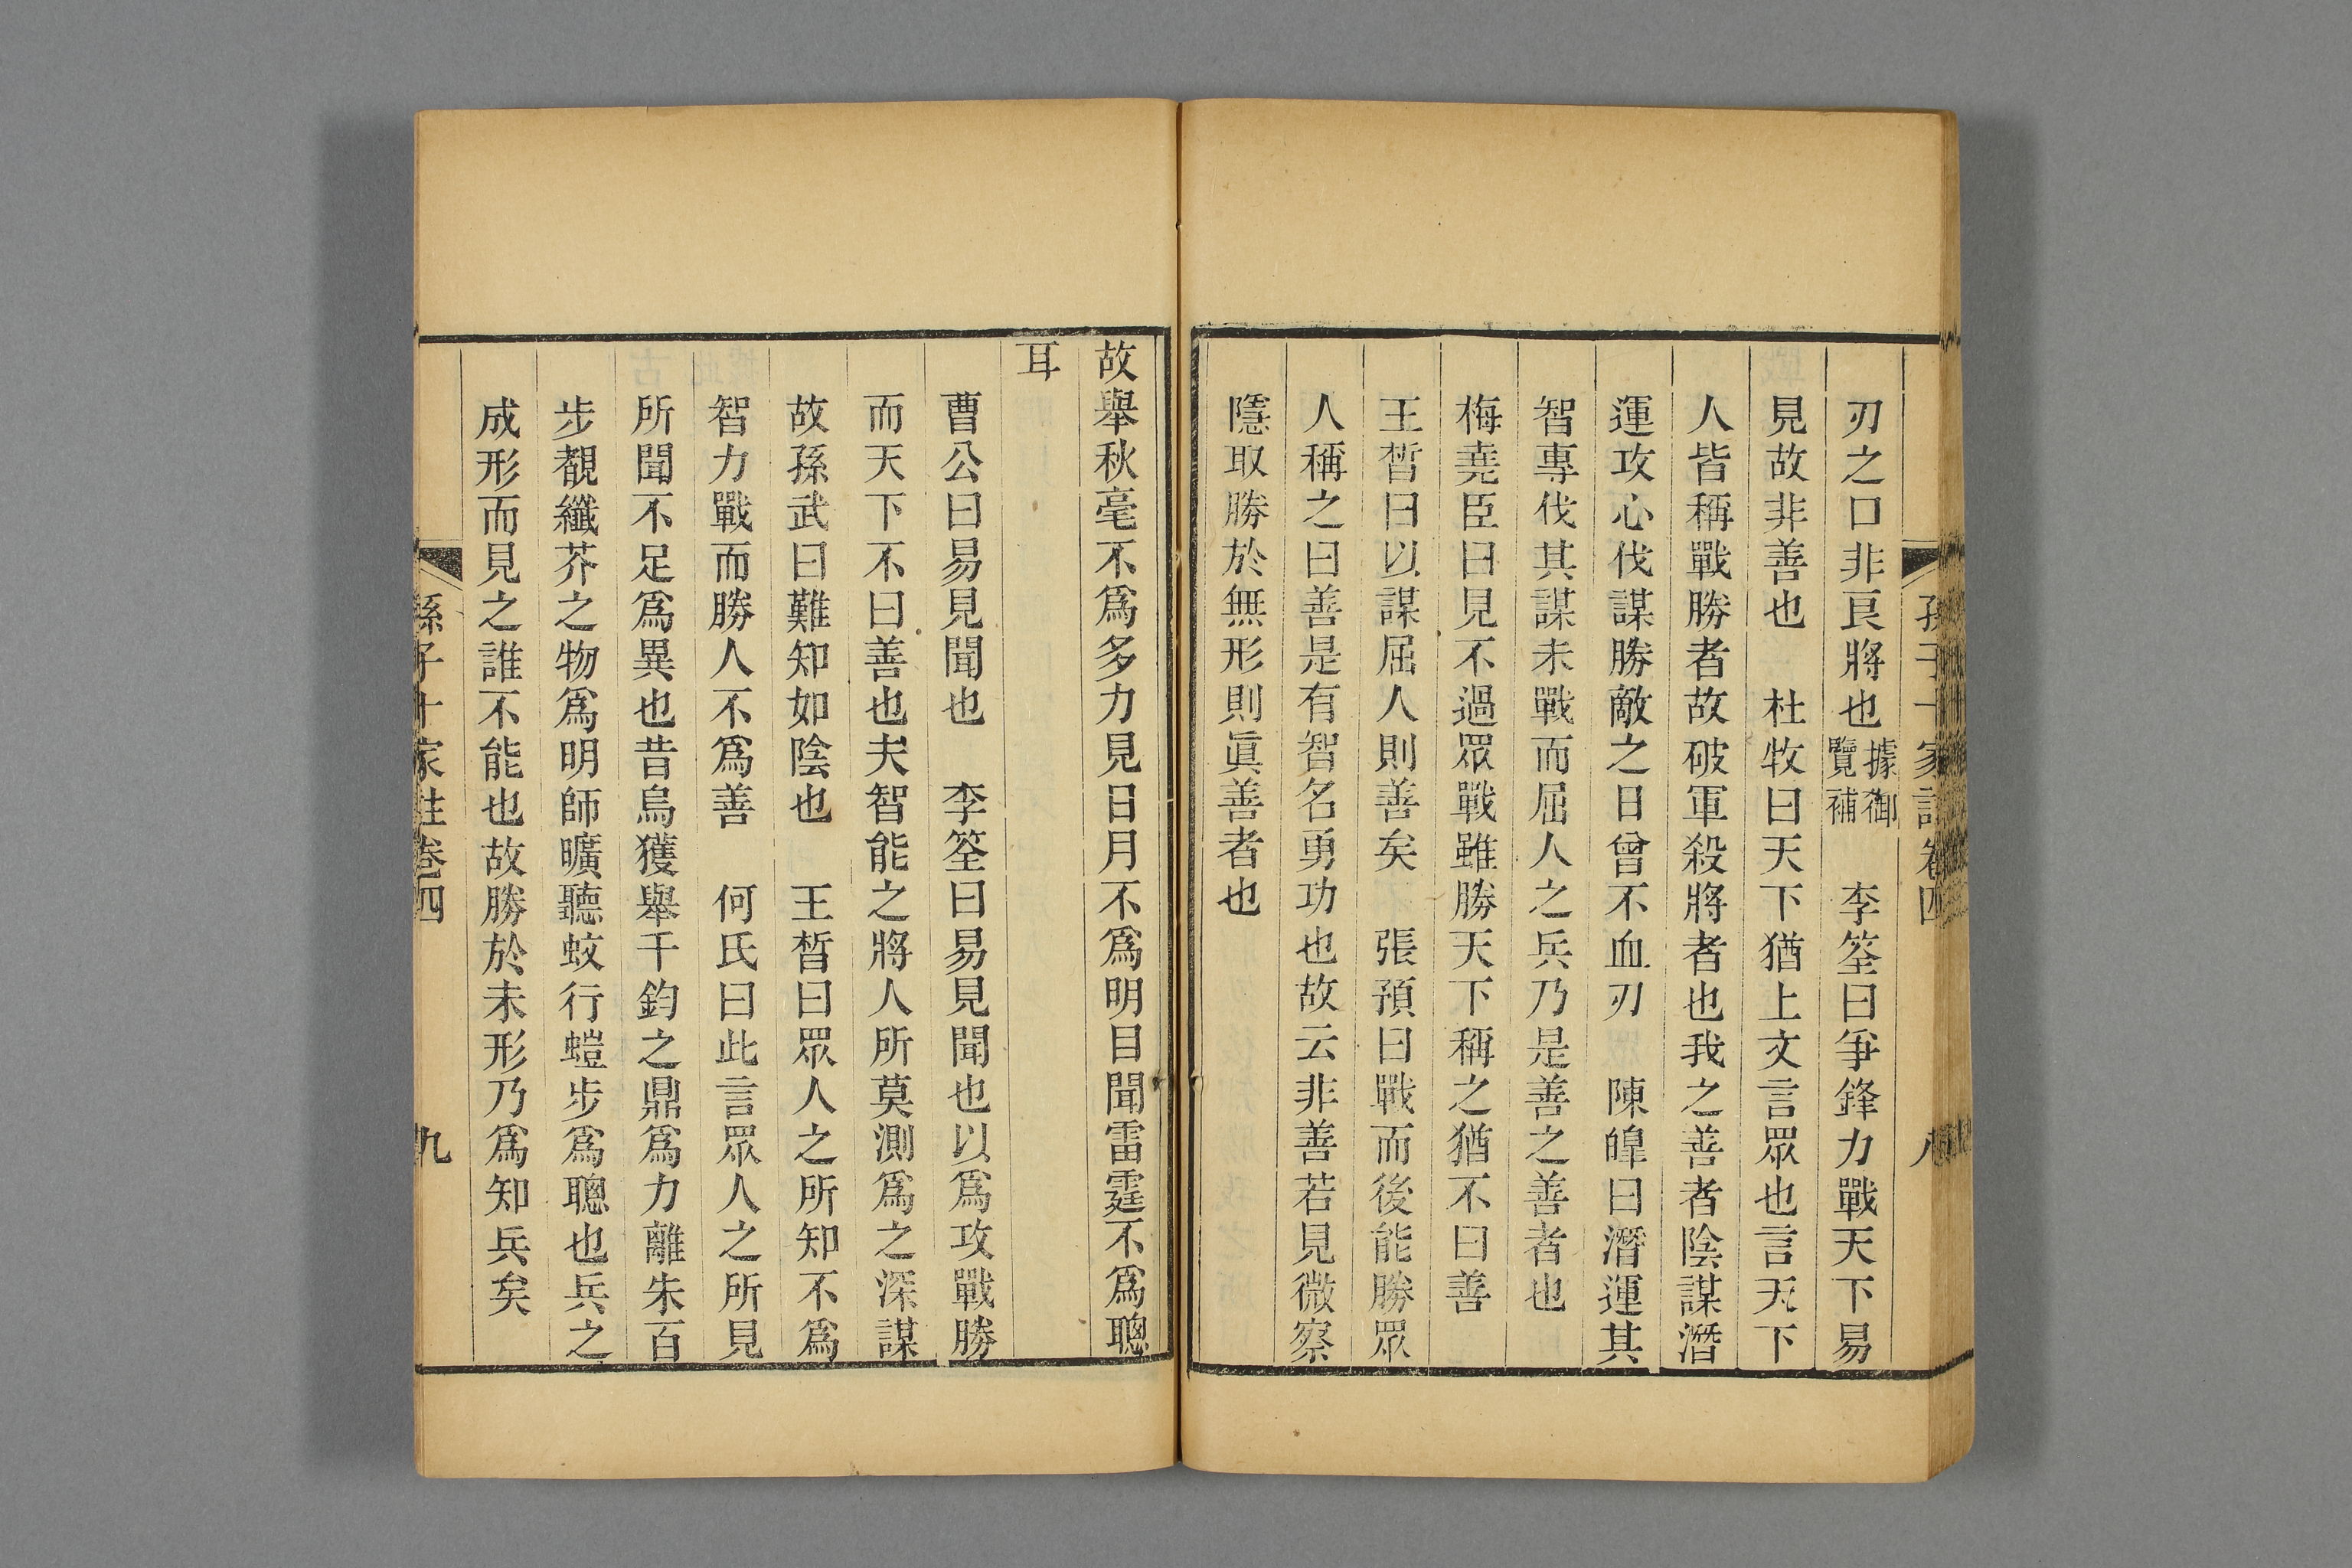 孫子十家註卷四 八
刃之口非良將也據御覽補 李筌曰爭鋒力戰天下易
見故非善也 杜牧曰天下猶上文言眾也言天下
人皆稱戰勝者故破軍殺將者也我之善者陰謀潛
運攻心伐謀勝敵之日曾不血刃 陳皥曰潛運其
智專伐其謀未戰而屈人之兵乃是善之善者也
梅堯臣曰見不過眾戰雖勝天下稱之猶不曰善
王晳曰以謀屈人則善矣 張預曰戰而後能勝眾
人稱之曰善是有智名勇功也故云非善若見微察
隱取勝於無形則眞善者也
故舉秋毫不爲多力見日月不爲明目聞雷霆不爲聰
耳
曹公曰易見聞也 李筌曰易見聞也以爲攻戰勝
而天下不曰善也夫智能之將人所莫測爲之深謀
故孫武曰難知如陰也 王晳曰眾人之所知不爲
智力戰而勝人不爲善 何氏曰此言眾人之所見
所聞不足爲異也昔烏獲舉千鈞之鼎爲力離朱百
步覩纖芥之物爲明師曠聽蚊行螘步爲聰也兵之
成形而見之誰不能也故勝於未形乃爲知兵矣
孫子十家註卷四 九